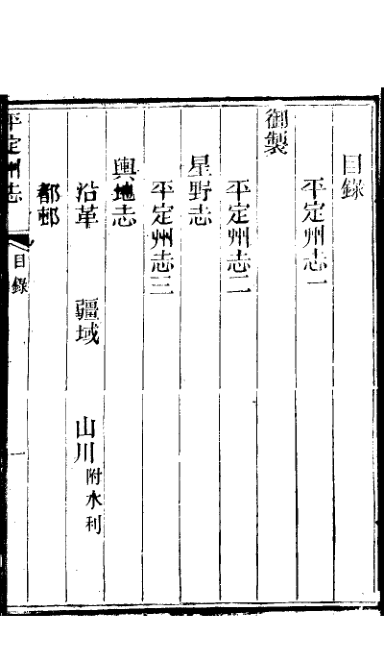 目錄
平定州志一
御製
平定州志二
星野志
平定州志三
輿地志
沿革 疆域 山川附水利
都邨
平定州志 目錄